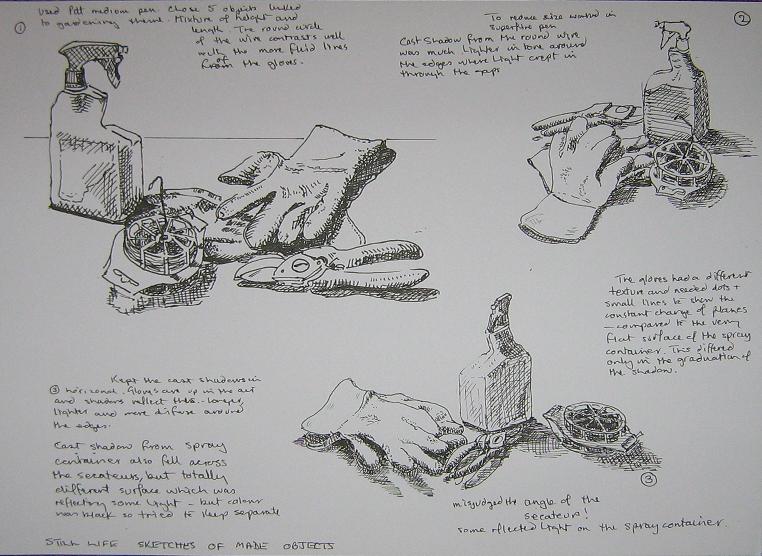 ①
used Pat medium pen. Chose 5 objects linked
to gardening theme. Mixture of height and
length. The round circle
of the wire contrasts well
with the more fluid lines
of
from the gloves.
②
To reduce size worked in
superfine pen
Cast Shadow from the round wire
was much lighter in tone around
the edges where light crept in
through the gaps
The gloves had a different
texture and needed dots +
small lines to show the
constant change of planes
– compared to the very
flat surface of the spray
container. This differed
only in the graduation of
the shadow.
Kept the cast shadows in
③ horizonal. Gloves are up in the air
and shadows reflect this - longer,
lighter and more diffuse around
the edges.
Cast shadow from spray
container also fell across
the secateurs, but totally
different surface which was
reflecting some light – but colour
was black so tried to keep separate
③
misjudged the angle of the
secateurs!
some reflected light on the spray container.
STILL LIFE SKETCHES OF MADE OBJECTS